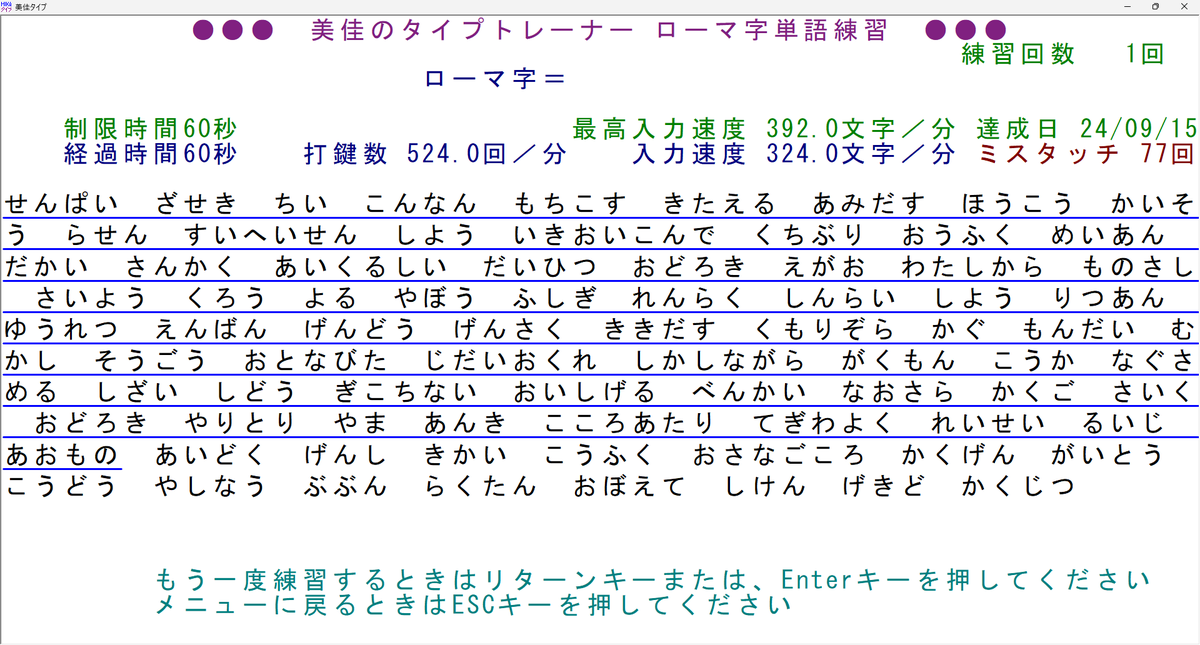 美佳タイプ
●●● 美佳のタイプトレーナー ローマ字単語練習 ●●●
練習回数 1回
ローマ字＝
制限時間60秒 最高入力速度 392.0文字／分 達成日 24/09/15
経過時間60秒 打鍵数 524.0回／分 入力速度 324.0文字／分 ミスタッチ 77回
せんぱい ざせき ちい こんなん もちこす きたえる あみだす ほうこう かいそ
う らせん すいへいせん しよう いきおいこんで くちぶり おうふく めいあん
だかい さんかく あいくるしい だいひつ おどろき えがお わたしから ものさし
さいよう くろう よる やぼう ふしぎ れんらく しんらい しよう りつあん
ゆうれつ えんばん げんどう げんさく ききだす くもりぞら かぐ もんだい む
かし そうごう おとなびた じだいおくれ しかしながら がくもん こうか なぐさ
める しざい しどう ぎこちない おいしげる べんかい なおさら かくご さいく
おどろき やりとり やま あんき こころあたり てぎわよく れいせい るいじ
あおもの あいどく げんし きかい こうふく おさなごころ かくげん がいとう
こうどう やしなう ぶぶん らくたん おぼえて しけん げきど かくじつ
もう一度練習するときはリターンキーまたは、Enterキーを押してください
メニューに戻るときはESCキーを押してください